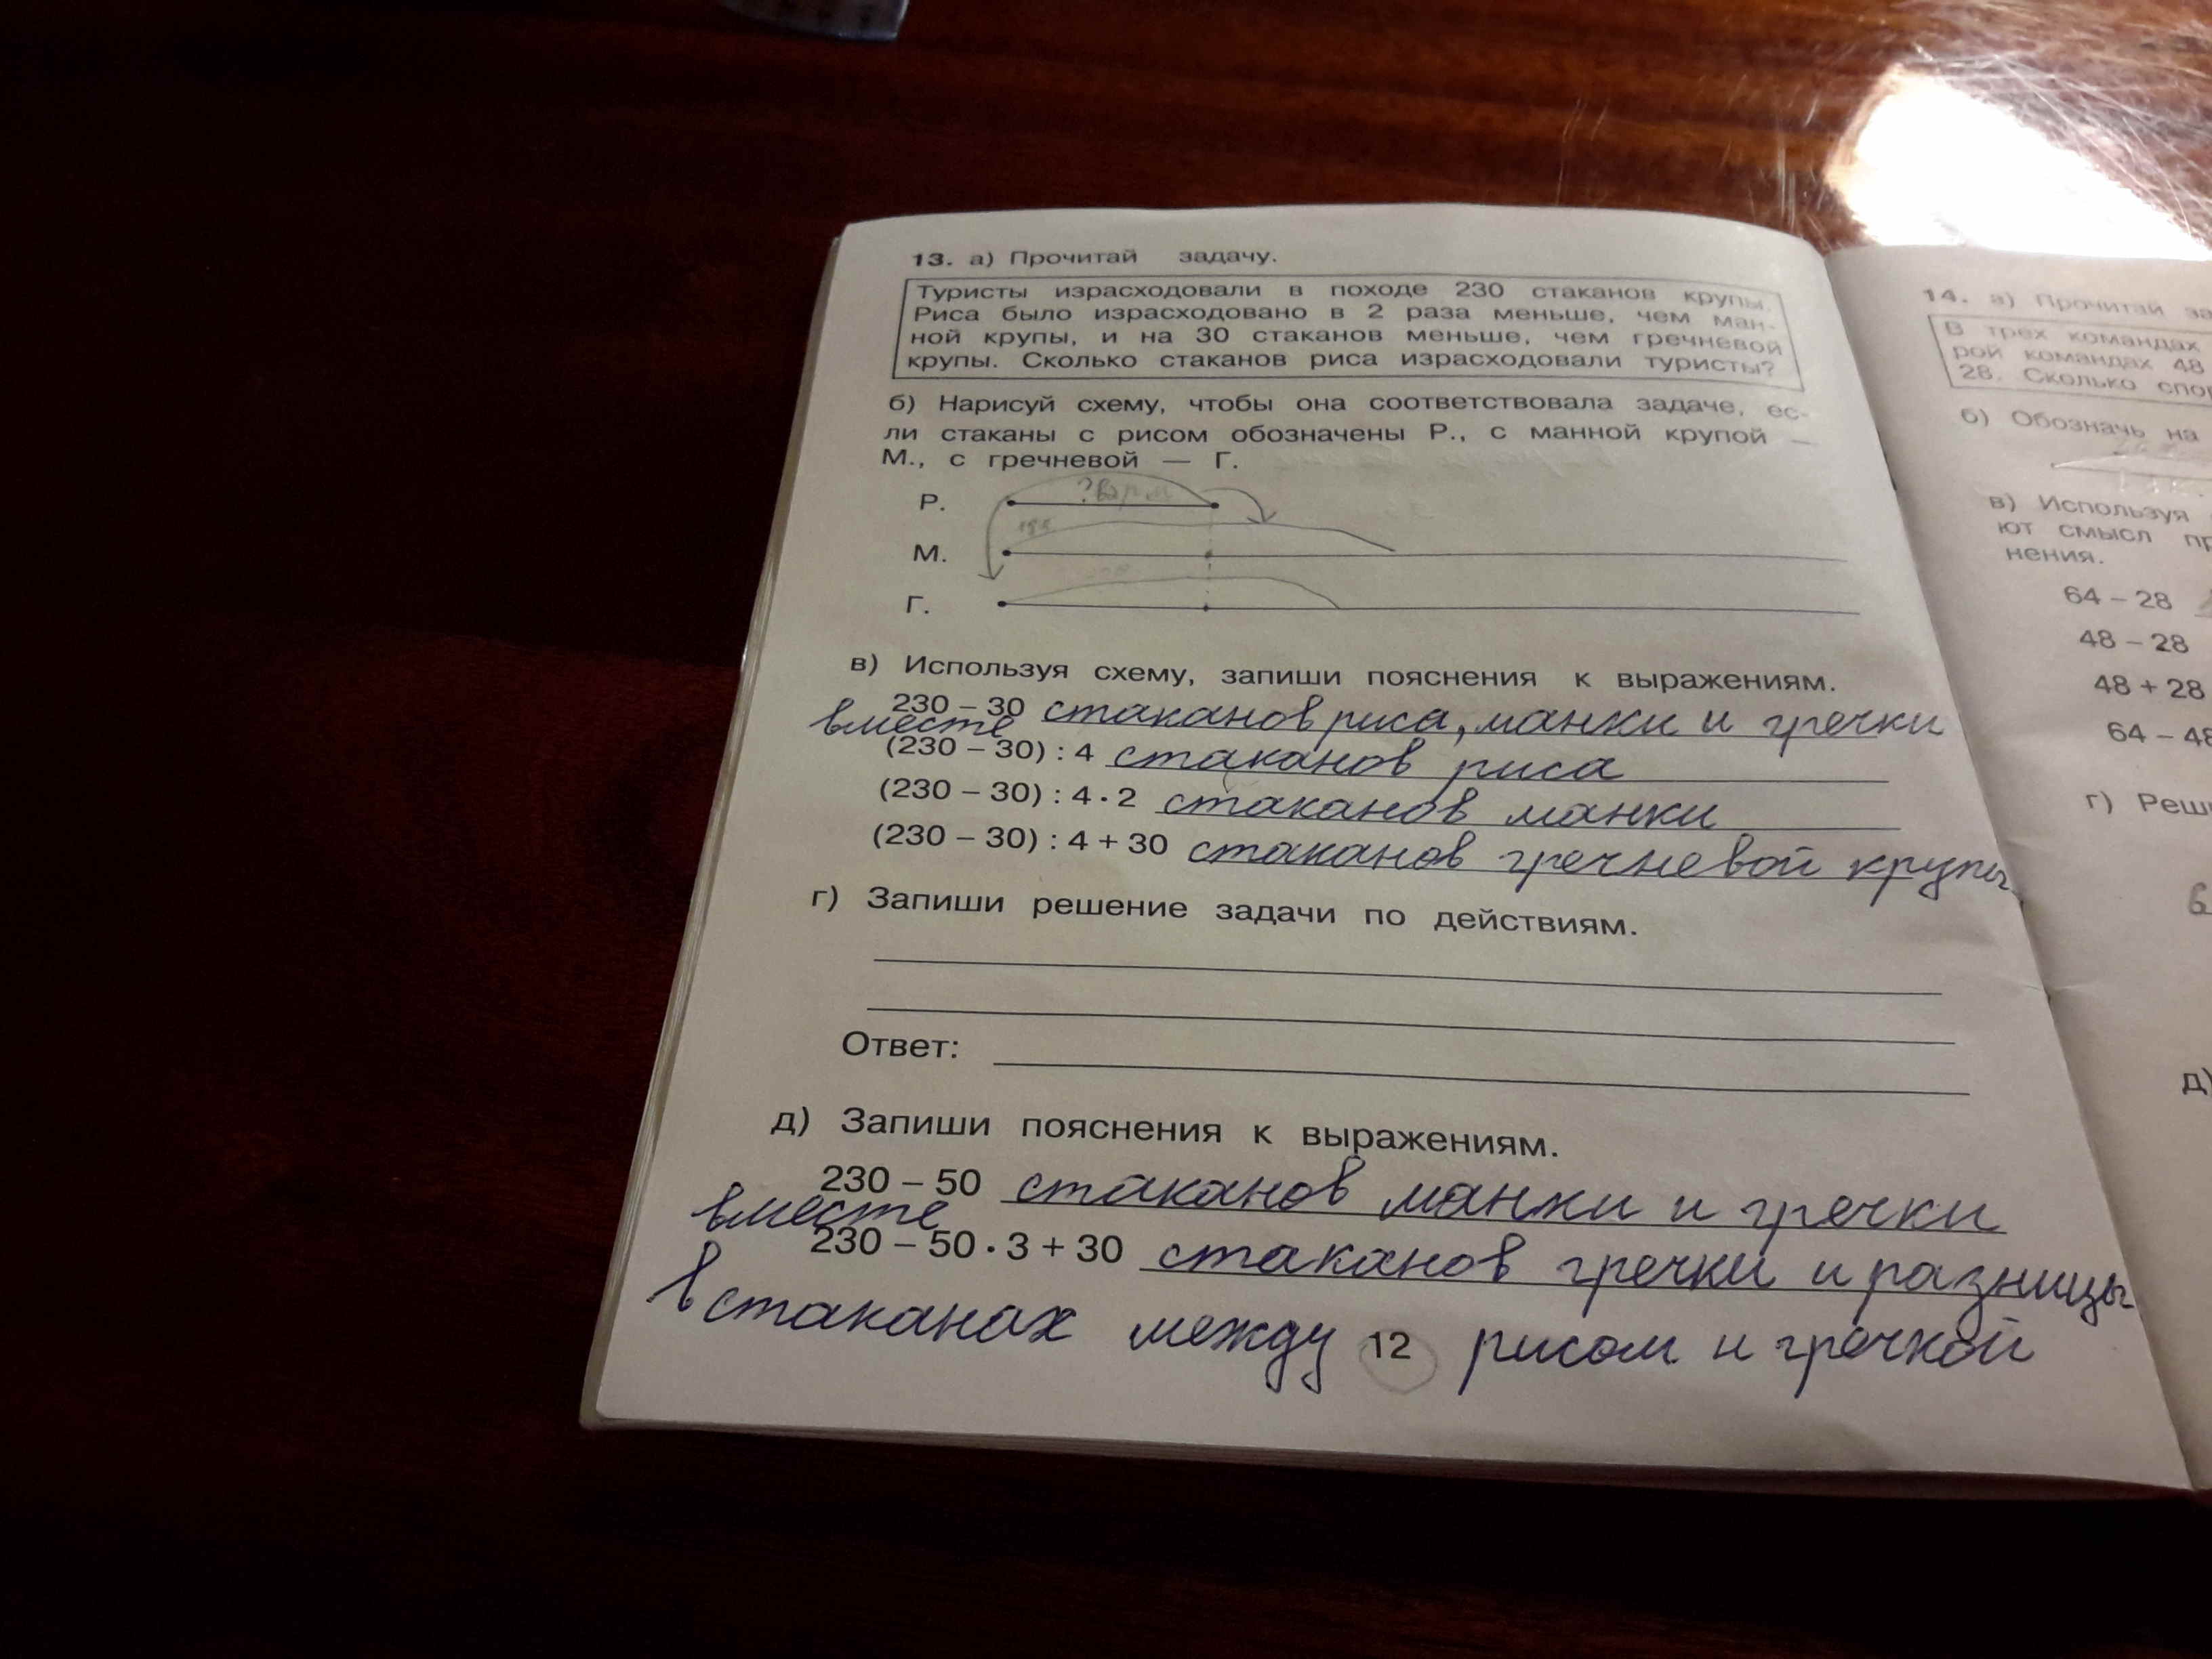 13. а) Прочитай задачу.
Туристы израсходовали в походе 230 стаканов крупы.
Риса было израсходовано в 2 раза меньше, чем ман-
ной крупы, и на 30 стаканов меньше, чем гречневой
крупы. Сколько стаканов риса израсходовали туристы?
б) Нарисуй схему, чтобы она соответствовала задаче, ес-
ли стаканы с рисом обозначены Р., с манной крупой —
М., с гречневой — Г.
Р.
М.
Г.
в) Используя схему, запиши пояснения к выражениям.
230 – 30 стаканов риса, манки и гречки
вместе
(230 – 30) : 4 стаканов риса
(230 – 30) : 4 · 2 стаканов манки
(230 – 30) : 4 + 30 стаканов гречневой крупы
г) Запиши решение задачи по действиям.
Ответ:
д) Запиши пояснения к выражениям.
230 – 50 стаканов манки и гречки
вместе
230 – 50 · 3 + 30 стаканов гречки и разницы
в стаканах между рисом и гречкой
12
14. а) Прочитай
В трех командах
рой командах 48
28. Сколько
б) Обозначь на
в) Используя
ют смысл
нения.
64 – 28
48 – 28
48 + 28
64 – 48
г)
д)